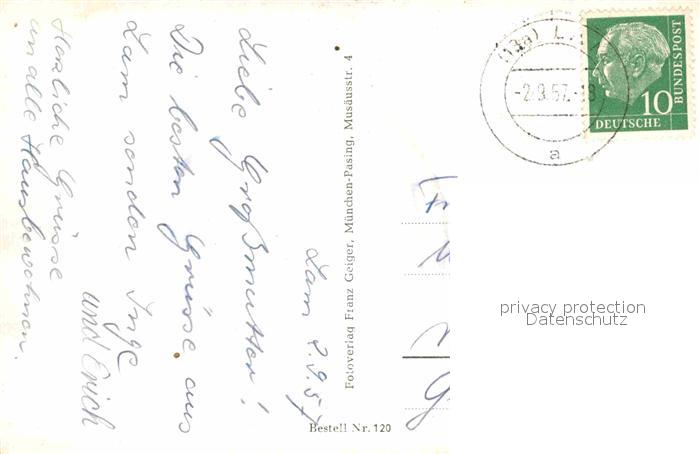 Lam 2.9.57
Liebe Großmutter!
Die besten Grüsse aus
Lam senden Inge
und Erich
Herzliche Grüsse
an alle Hausbewohner.
Fotoverlag Franz Geiger, München-Pasing, Musäusstr. 4
Bestell Nr. 120
-2.9.57.-18
a
10
DEUTSCHE
BUNDESPOST
privacy protection
Datenschutz